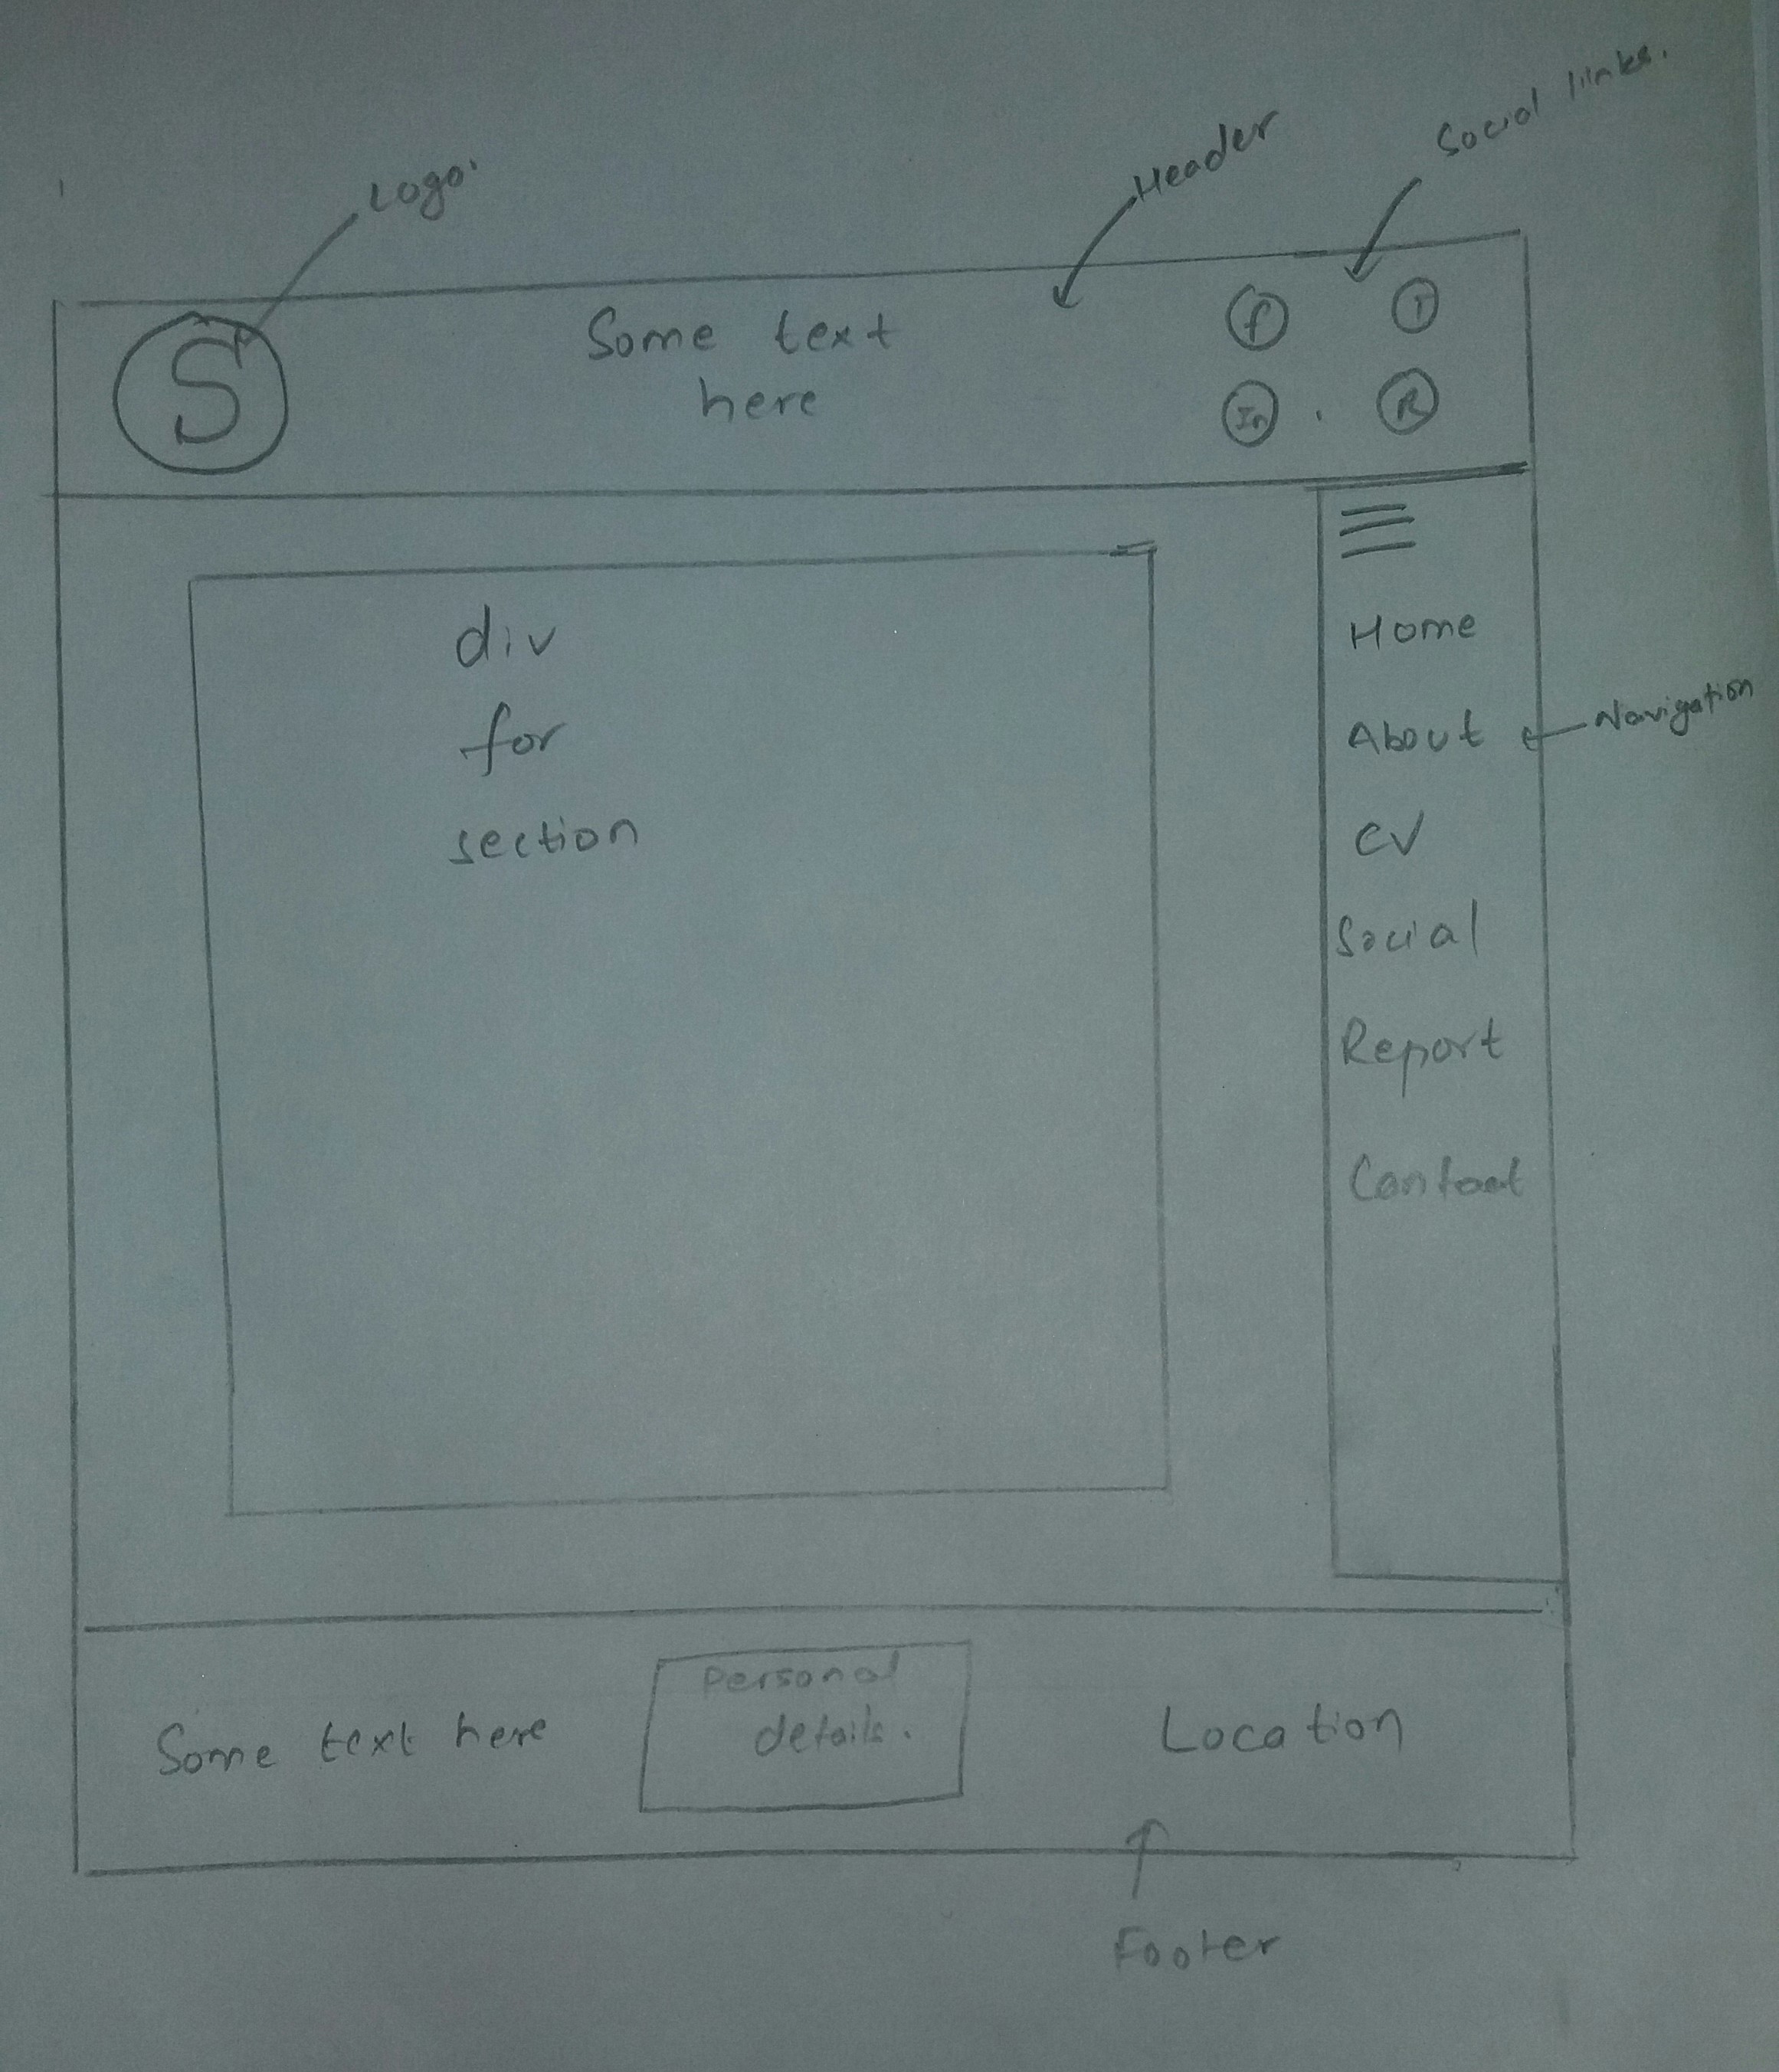 Social links.
Header
Logo.
S
Some text
here
f
T
In
R
div
for
section
Home
About
Navigation
CV
Social
Report
Contact
Some text here
Personal
details.
Location
Footer